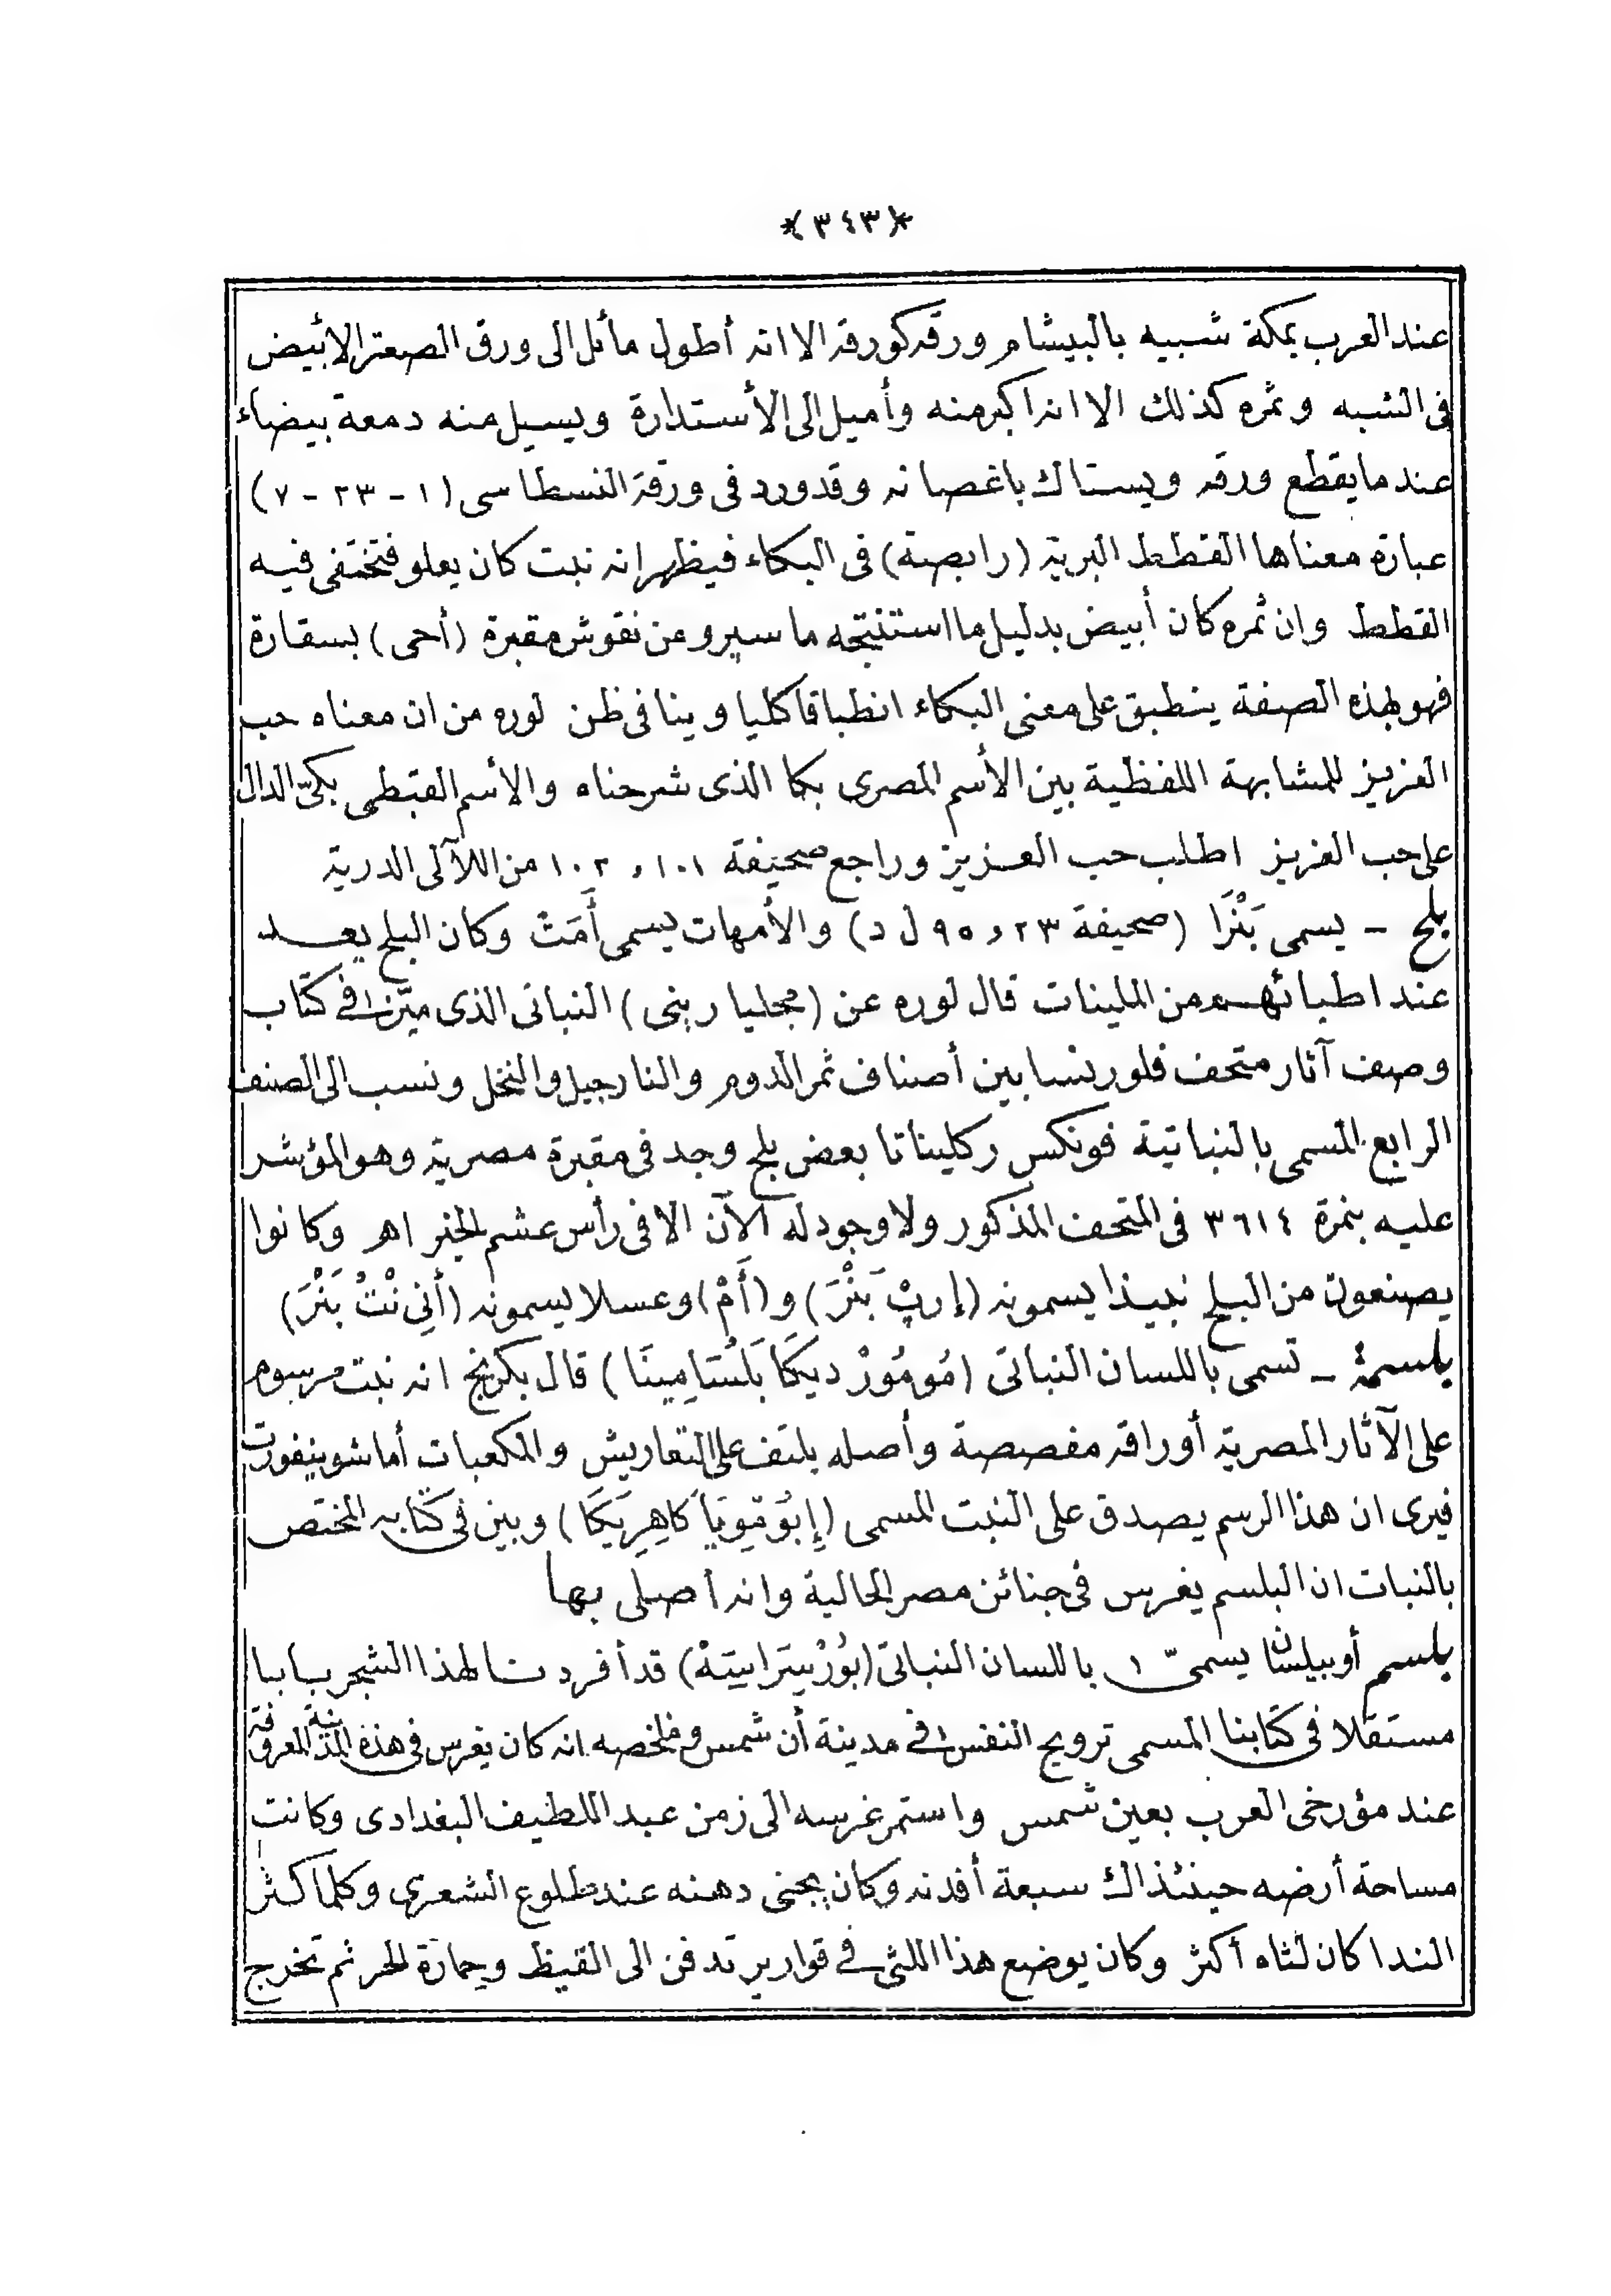 *(٣٤٣)*
عند العرب بمكة شبيه بالبيشام ورقه كورقه الا انه أطول مأئل الى ورق الصعتر الأبيض
فى الشبه وثمره كذلك الا انه اكبر منه وأميل الى الأستدارة ويسيل منه دمعة بيضاء
عند ما يقطع ورقه ويستاك باغصانه وقد ورد فى ورقة النسطاسى (١ - ٢٣ - ٧)
عبارة معناها القطط البرية (رابصة) فى البكاء فيظهر انه نبت كان يعلو فتختفى فيه
القطط وان ثمره كان أبيض بدليل ما استنتجه ماسپرو عن نقوش مقبرة (أحى) بسقارة
فهو لهذه الصفة ينطبق على معنى البكاء انطباقا كليا وينافى ظن لوره من ان معناه حب
العزيز للمشابهة اللفظية بين الأسم المصرى بكا الذى شرحناه والأسم القبطى بكىّ الدال
على حب العزيز اطلب حب العزيز وراجع صحيفة ١٠١ و ١٠٢ من اللآلى الدرية
بلح - يسمى بَنْرَا (صحيفة ٢٣ و ٩٥ ل د) والأمهات يسمى أَمَتْ وكان البلح يعد
عند اطبائهم من الملينات قال لوره عن (مجليارينى) النباتى الذى ميّز فى كتاب
وصف آثار متحف فلورنسا بين أصناف ثمر الدوم والنارجيل والنخل ونسب الى الصنف
الرابع المسمى بالنباتية فونكس ركليناتا بعض بلح وجد فى مقبرة مصرية وهو المؤشر
عليه بنمرة ٣٦١٤ فى المتحف المذكور ولا وجود له الآن الا فى رأس عشم الخير اهـ وكانوا
يصنعون من البلح نبيذا يسمونه (إرپْ بَنْرَ) و (أَمْ) وعسلا يسمونه (أَنِى نْتْ بَنْرَ)
بلسمة - تسمى باللسان النباتى (مُومُورْديكَا بَلْسَامِينَا) قال بكرنج انه نبت مرسوم
على الآثار المصرية أوراقه مفصصة وأصله يلتف على التعاريش والمكعبات أما شوينفورت
فيرى ان هذا الرسم يصدق على النبت المسمى (إِبُومِّويَا كَاهِرِيَكَا) وبين فى كتابه المختص
بالنبات ان البلسم يغرس فى جنائن مصر الحالية وانه أصلى بها
بلسم أو بيلسان يسمىّ باللسان النباتى (بُورْسِيرَاسِيَهْ) قد أفردنا لهذا الشجر بابا
مستقلا فى كتابنا المسمى ترويح النفس فى مدينة أن شمس وملخصه انه كان يغرس فى هذه المدينة المعروفة
عند مؤرخى العرب بعين شمس واستمر غرسه الى زمن عبد اللطيف البغدادى وكانت
مساحة أرضه حينئذاك سبعة أفدنه وكان يجنى دهنه عند طلوع الشعرى وكلما كثر
الندا كان لثاه أكثر وكان يوضع هذا اللثى فى قوارير تدفن الى القيظ وحمارة الحر ثم تخرج